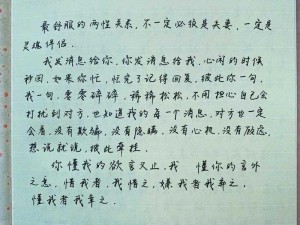 最舒服的两性关系,不一定必须是夫妻,一定是
灵魂伴侣。
我发消息给你,你发消息给我,心闲的时候
秒回,如果你忙,忙完了记得回复,彼此你一句,
我一句,零零碎碎,稀稀松松,不用担心自己会
打扰到对方,也知道我的每一个消息,对方也一定
会看,没有欺骗,没有隐瞒,没有心机,没有敷衍,
想说就说,彼此牵挂。
你懂我的欲言又止,我懂你的言外
之意,惜我者,我惜之,嫌我者我弃之,
懂我者我幸之。